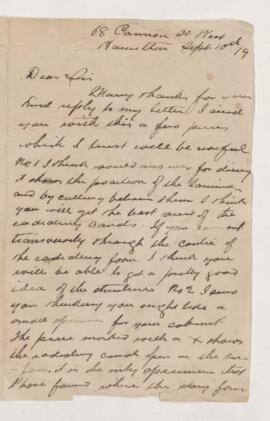 68 Cannon St West
Hamilton Sept 10th /9
Dear Sir
Many thanks for your
kind reply to my letter I send
you with this a few pieces
which I trust will be useful
No 1 I think would answer for
it shows the position of the laminae
and by cutting between them I think
you will get the best view of the
radiating canals. If you cut
transversely through the centre of
the radiating form I think you
will be able to get a pretty good
idea of the structure. No 2 I send
you thinking you might like a
small specimen for your cabinet.
The piece marked with a x shows
the radiating canals open in the
it is the only specimen that
I have found where the